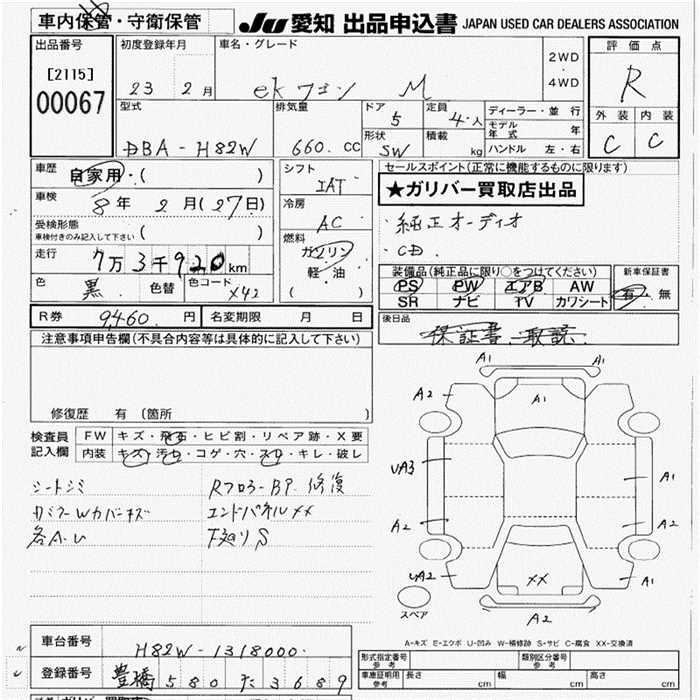 車内保管・守衛保管
JU 愛知 出品申込書 JAPAN USED CAR DEALERS ASSOCIATION
出品番号
[2115]
00067
初度登録年月
23 2月
車名・グレード
ekワゴン M
2WD
・
4WD
評価点
R
外装 内装
C C
型式
DBA-H82W
排気量
660. CC
ドア
5
定員
4.人
形状
SW
積載
kg
ディーラー・並行
モデル年式 年
ハンドル 左・右
車歴
自家用・( )
車検
8年 2月(27日)
受検形態
車検付きのみ記入して下さい ( )
走行
7万3千920km
色
黒
色替
色コード
X42
シフト
IAT
冷房
AC
燃料
ガソリン
軽・油
( )
セールスポイント(正常に機能するものに限ります)
★ガリバー買取店出品
・純正オーディオ
・CD
装備品(純正品に限り○をつけてください)
PS PW エアB AW
SR ナビ TV カワシート
新車保証書
有・無
R券 9,460. 円
名変期限 月 日
後日品
保証書 取説
注意事項申告欄(不具合内容等は具体的に記入して下さい)
修復歴 有(箇所 )
検査員
記入欄
FW キズ・飛石・ヒビ割・リペア跡・X要
内装 キズ・汚れ・コゲ・穴・スレ・キレ・破レ
シートシミ
各A.U
RフロアーBP.修復
エンドパネルXX
下廻りS
A1
A1
A2
A1
UA3
A1
A2
A2
UA2
XX
A1
A2
スペア
A-キズ E-エクボ U-凹み W-補修跡 S-サビ C-腐食 XX-交換済
車台番号 H82W-1318000.
登録番号 豊橋 580 た 3689
形式指定番号
参考
類別区分番号
参考
車庫証明用
参考
長さ cm
幅 cm
高さ cm